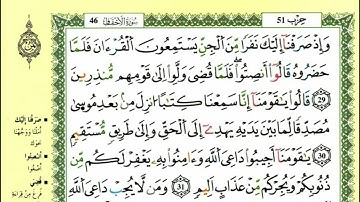 حِزْب 51
سُورَةُ الأَحْقَافِ 46
وَإِذْ صَرَفْنَا إِلَيْكَ نَفَرًا مِّنَ ٱلْجِنِّ يَسْتَمِعُونَ ٱلْقُرْءَانَ فَلَمَّا
حَضَرُوهُ قَالُوٓا۟ أَنصِتُوا۟ فَلَمَّا قُضِىَ وَلَّوْا۟ إِلَىٰ قَوْمِهِم مُّنذِرِينَ
29 قَالُوا۟ يَٰقَوْمَنَآ إِنَّا سَمِعْنَا كِتَٰبًا أُنزِلَ مِنۢ بَعْدِ مُوسَىٰ
مُصَدِّقًا لِّمَا بَيْنَ يَدَيْهِ يَهْدِىٓ إِلَى ٱلْحَقِّ وَإِلَىٰ طَرِيقٍ مُّسْتَقِيمٍ
30 يَٰقَوْمَنَآ أَجِيبُوا۟ دَاعِىَ ٱللَّهِ وَءَامِنُوا۟ بِهِۦ يَغْفِرْ لَكُم مِّن
ذُنُوبِكُمْ وَيُجِرْكُم مِّنْ عَذَابٍ أَلِيمٍ 31 وَمَن لَّا يُجِبْ دَاعِىَ ٱللَّهِ
صَرَفْنَا إِلَيْكَ
أَنصِتُوا
قُضِيَ